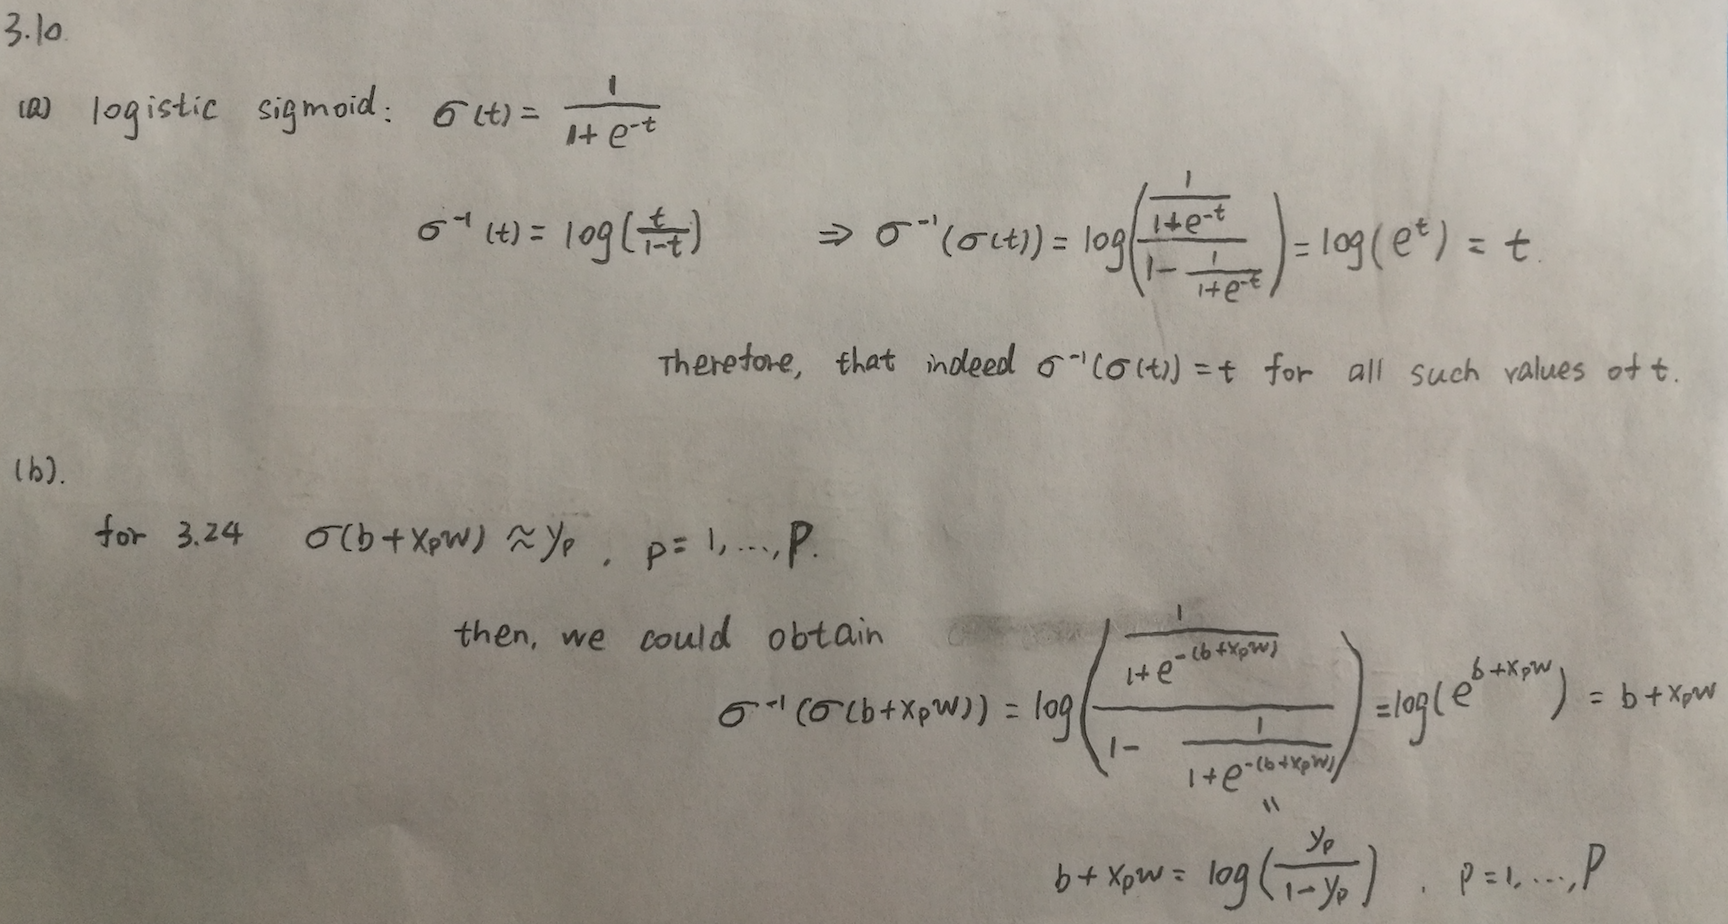 3.10.
(a) logistic sigmoid: σ(t) = \frac{1}{1+e^{-t}}
σ^{-1}(t) = log(\frac{t}{1-t}) ⇒ σ^{-1}(σ(t)) = log(\frac{\frac{1}{1+e^{-t}}}{1-\frac{1}{1+e^{-t}}}) = log(e^t) = t.
Therefore, that indeed σ^{-1}(σ(t)) = t for all such values of t.
(b).
for 3.24 σ(b+x_pw) ≈ y_p, p = 1, ..., P.
then, we could obtain
σ^{-1}(σ(b+x_pw)) = log(\frac{\frac{1}{1+e^{-(b+x_pw)}}}{1-\frac{1}{1+e^{-(b+x_pw)}}}) = log(e^{b+x_pw}) = b+x_pw
"
b+x_pw = log(\frac{y_p}{1-y_p}), p = 1, ..., P